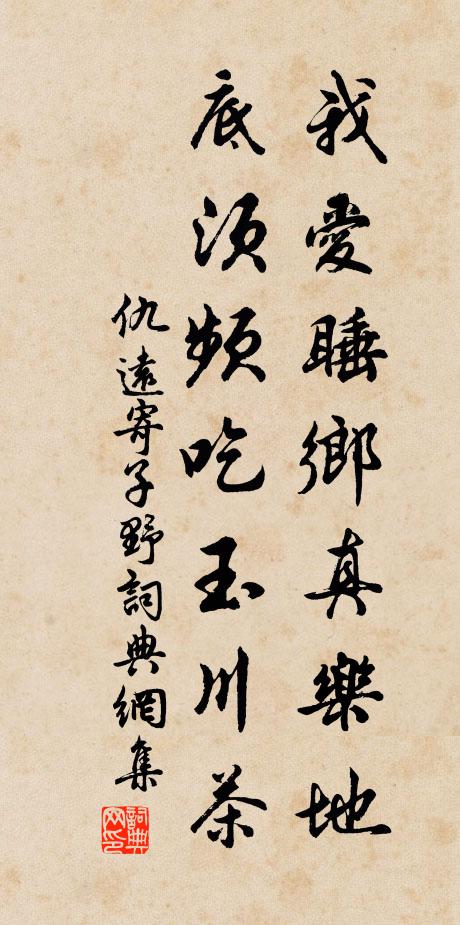 我愛睡鄉真樂地
底須頻吃玉川茶
仇遠寄子野詞典網集
詞典網印